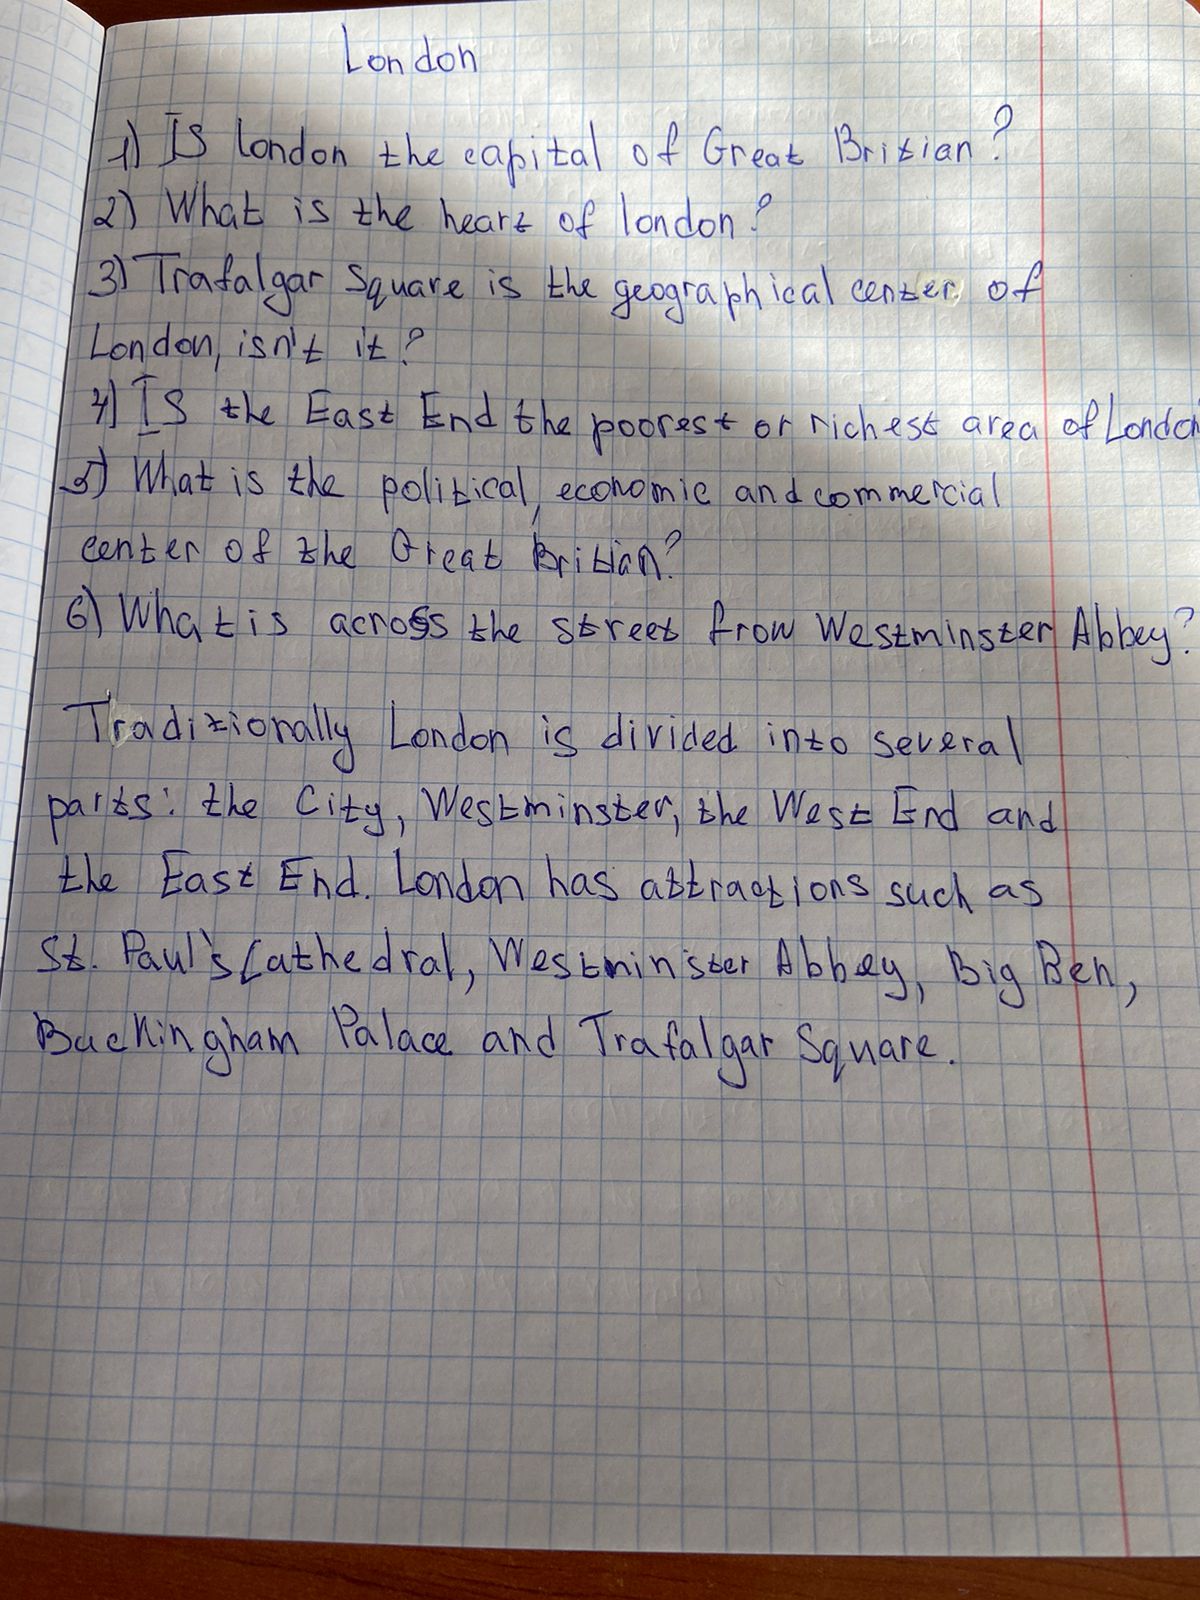 London
1) Is London the capital of Great Britian?
2) What is the heart of london?
3) Trafalgar Square is the geographical center of
London, isn't it?
4) Is the East End the poorest or richest area of London
5) What is the political, economic and commercial
center of the Great Britian?
6) What is across the street from Westminster Abbey?
Traditionally London is divided into several
parts: the City, Westminster, the West End and
the East End. London has attractions such as
St. Paul's Cathedral, Westminister Abbey, Big Ben,
Buckingham Palace and Trafalgar Square.